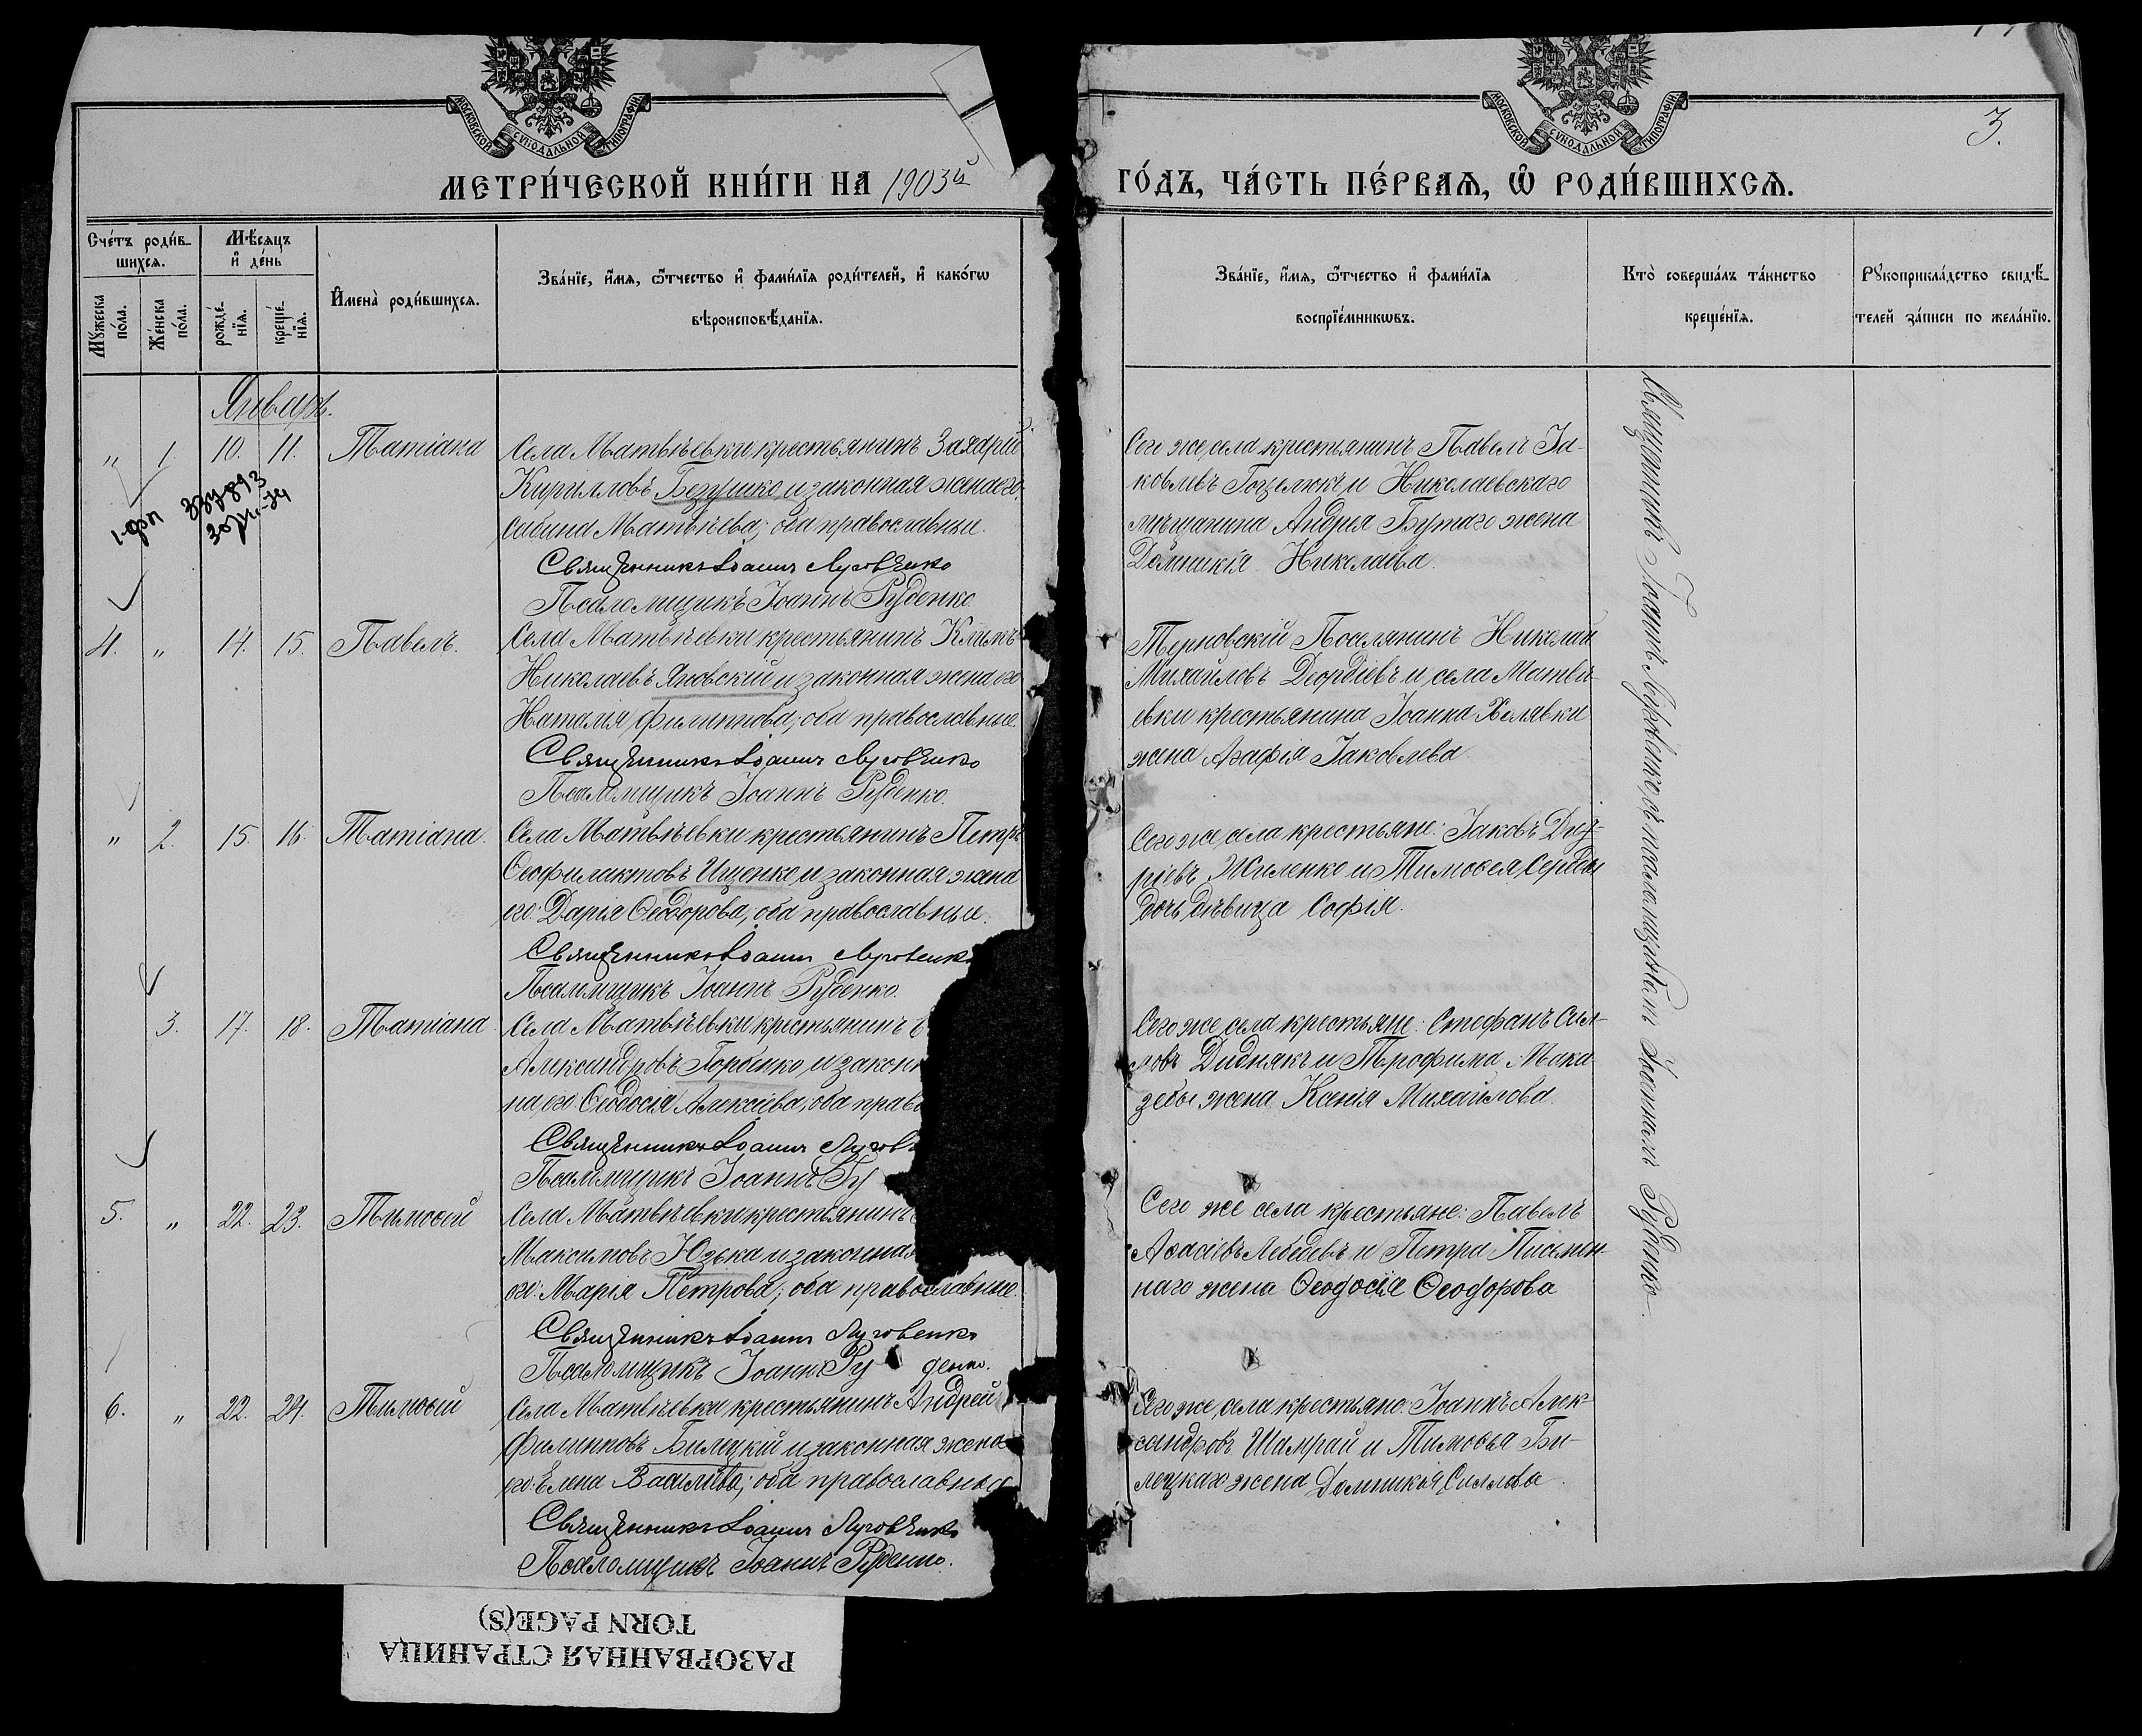 МОСКОВСКОЙ СУНОДАЛЬНОЙ ТИПОГРАФІИ
МОСКОВСКОЙ СУНОДАЛЬНОЙ ТИПОГРАФІИ
3.
МЕТРИ́ЧЕСКОЙ КНИ́ГИ НА 1903й
ГО́ДЪ, ЧА́СТЬ ПЕ́РВАѦ, Ѡ҆ РОДИ́ВШИХСѦ.
Сче́тъ роди́в-
шихсѧ.
Мѣ́сѧцъ
и҆ де́нь
И҆мена̀ роди́вшихсѧ.
Зва́нїе, и҆́мѧ, ѻ҆́тчество и҆ фами́лїѧ роди́телей, и҆ како́гѡ
вѣроисповѣ́данїѧ.
Мꙋ́жеска
по́ла.
Же́нска
по́ла.
рожде́-
нїѧ.
креще́-
нїѧ.
Зва́нїе, и҆́мѧ, ѻ҆́тчество и҆ фами́лїѧ
воспрїе́мникѡвъ.
Кто̀ соверша́лъ та́инство
креще́нїѧ.
Рꙋкоприкла́дство свидѣ́-
телей за́писи по жела́нїю.
Январь.
„ 1. 10. 11. Татіана
Села Матвѣевки крестьянинъ Захарій
Кирилловъ Безушко и законная жена его
Савина Матвѣева; оба православные.
Священникъ Іоаннъ Луговенко
Псаломщикъ Іоаннъ Руденко.
Сего же села крестьянинъ Павелъ Іа-
ковлевъ Гоцелюкъ и Николаевскаго
мѣщанина Андрея Бутаго жена
Домникія Николаева.
4. „ 14. 15. Павелъ.
Села Матвѣевки крестьянинъ Климъ
Николаевъ Яновскій и законная жена его
Наталія Филиппова; оба православные
Священникъ Іоаннъ Луговенко
Псаломщикъ Іоаннъ Руденко.
Терновскій Поселянинъ Николай
Михайловъ Деордіевъ и села Матвѣ-
евки крестьянина Іоанна Халявки
жена Агафія Іаковлева.
„ 2. 15. 16. Татіана.
Села Матвѣевки крестьянинъ Петръ
Ѳеофилактовъ Ищенко и законная жена
его: Дарія Ѳеодорова; оба православные.
Священникъ Іоаннъ Луговенко
Псаломщикъ Іоаннъ Руденко.
Сего же села крестьяне: Іаковъ
Жиленко и Тимоѳея Середы
дочь дѣвица Софія.
3. 17. 18. Татіана.
Села Матвѣевки крестьянинъ
Александровъ Горбенко и законн
на его Ѳеодосія Алексіева; оба право
Священникъ Іоаннъ Лугов
Псаломщикъ Іоаннъ Ру
Сего же села крестьяне: Стефанъ Сил-
ловъ Диднякъ и Трофима Мака-
зебы жена Ксенія Михайлова.
5. „ 22. 23. Тимоѳей
Села Матвѣевки крестьянинъ
Максимовъ Юзька и законная
его: Марія Петрова; оба православные.
Священникъ Іоаннъ Луговенко
Псаломщикъ Іоаннъ Ру денко.
Сего же села крестьяне: Павелъ
Агаѳіевъ Лебедевъ и Петра Письмен-
наго жена Ѳеодосія Ѳеодорова
6. „ 22. 24. Тимоѳей
Села Матвѣевки крестьянинъ Андрей
Филипповъ Билецкій и законная жена
его: Елена Василіева; оба православные
Священникъ Іоаннъ Луговенко
Псаломщикъ Іоаннъ Руденко.
Сего же села крестьяне: Іоаннъ Алек-
сандровъ Шамрай и Тимоѳея Би-
лецкаго жена Домникія Силлова.
Священникъ Іоаннъ Луговенко, съ псаломщикомъ Іоанномъ Руденко.
РАЗОРВАННАЯ СТРАНИЦА
TORN PAGE(S)